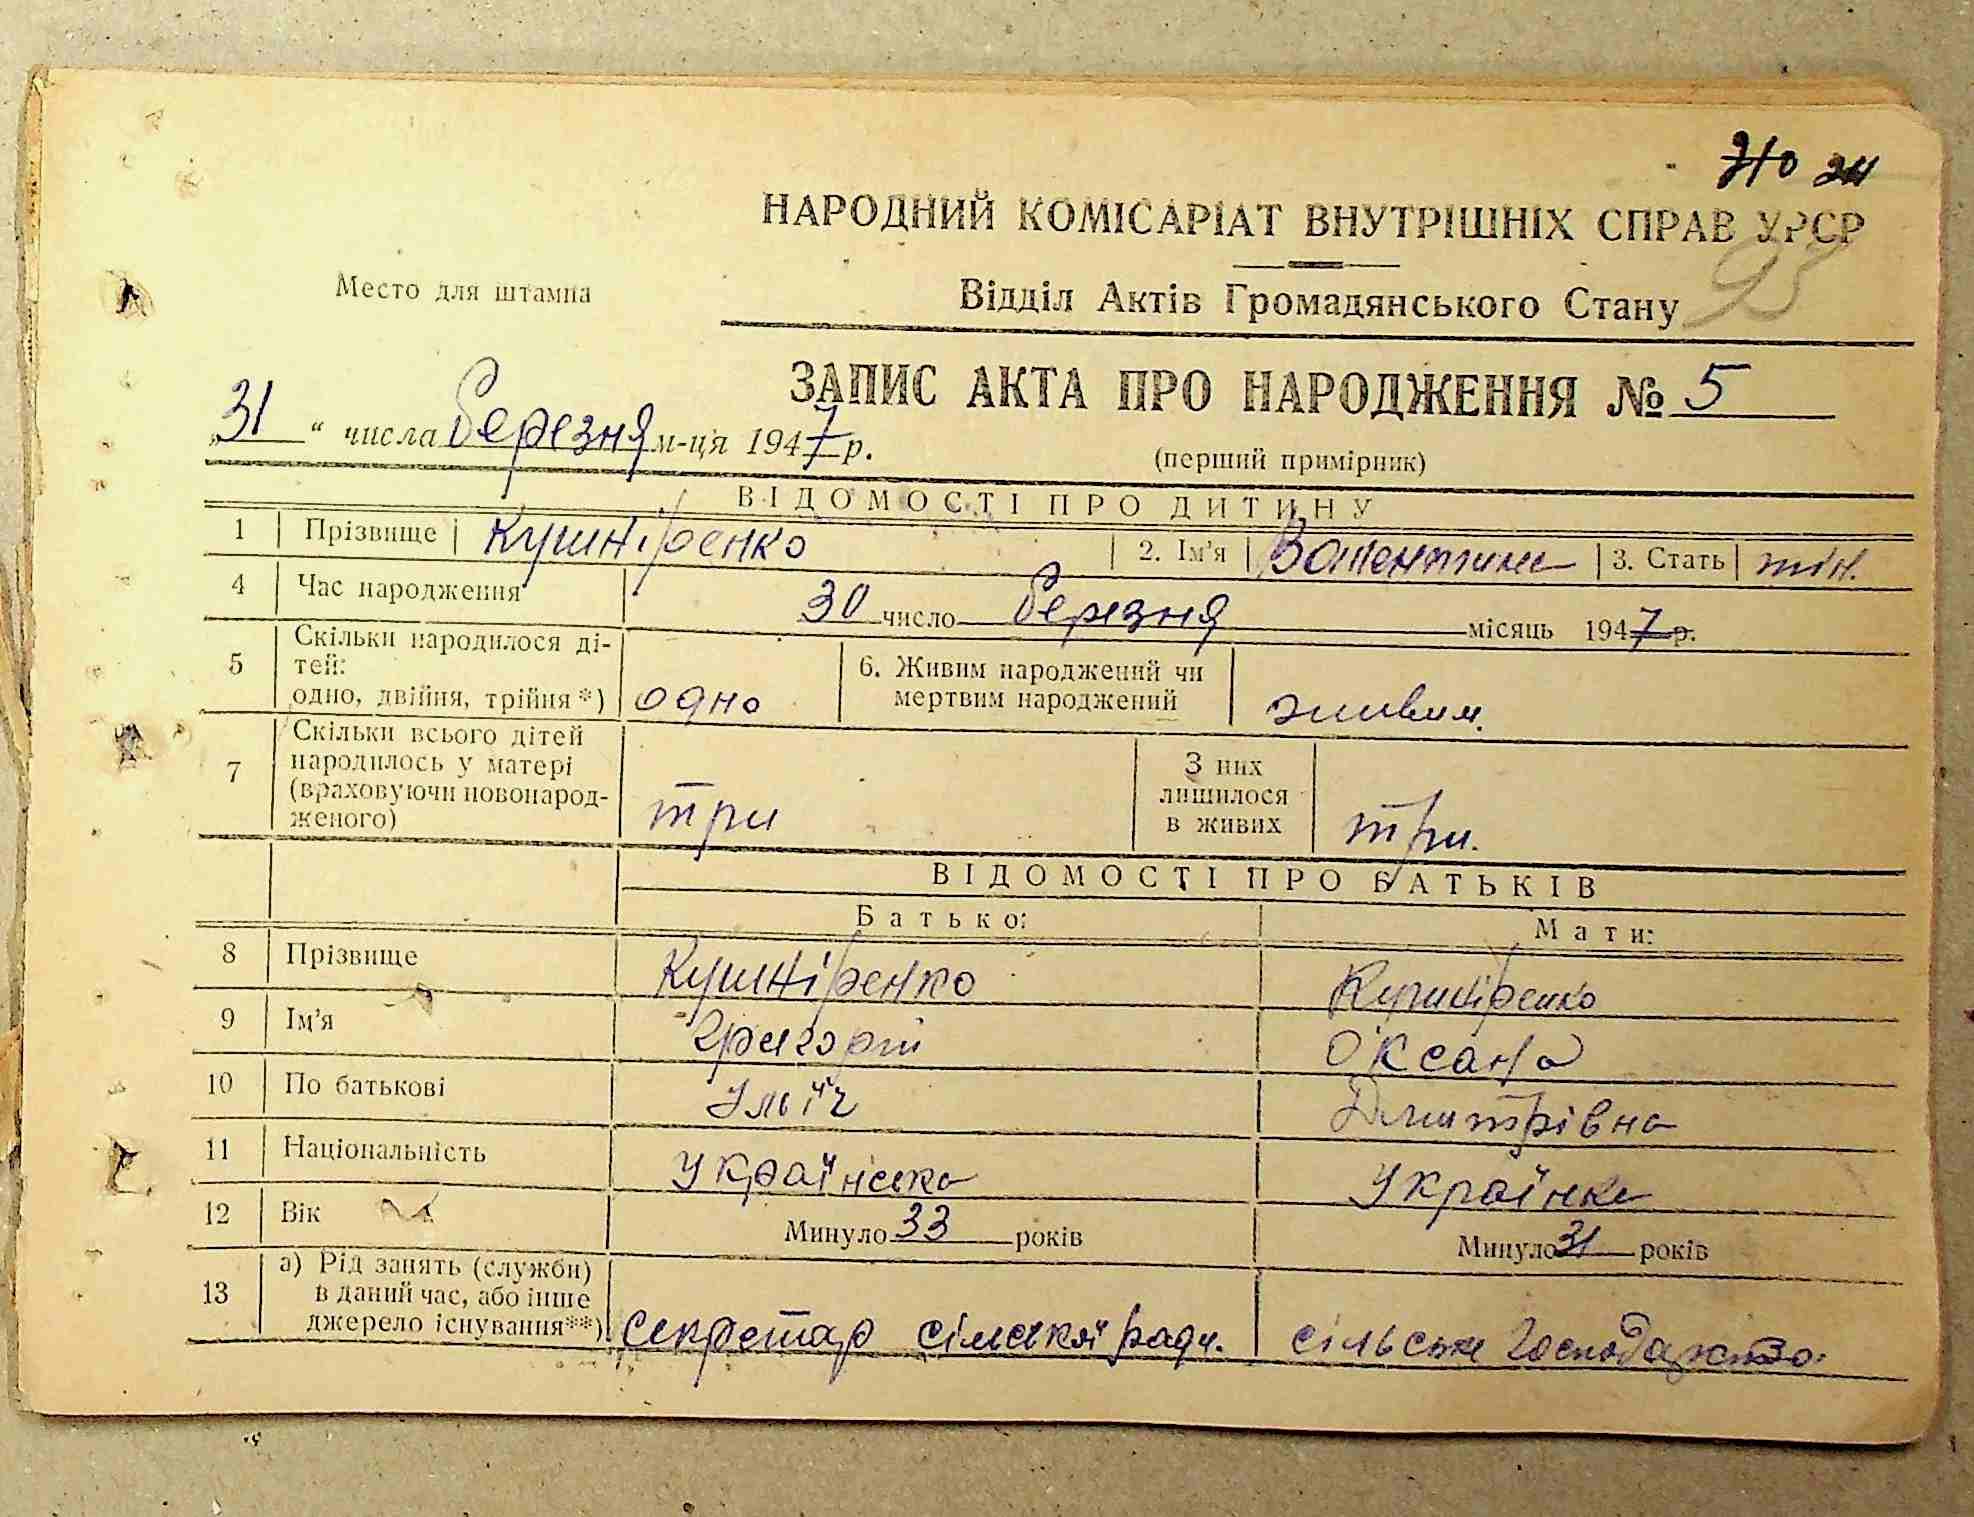 НАРОДНИЙ КОМІСАРІАТ ВНУТРІШНІХ СПРАВ УРСР
Место для штампа
Відділ Актів Громадянського Стану
93
ЗАПИС АКТА ПРО НАРОДЖЕННЯ № 5
„31“ числа березня м-ця 1947 р.
(перший примірник)
ВІДОМОСТІ ПРО ДИТИНУ
1 Прізвище Кушніренко 2. Ім'я Валентина 3. Стать жін.
4 Час народження 30 число березня місяць 1947 р.
5 Скільки народилося ді-
тей:
одно, двійня, трійня*) одно 6. Живим народжений чи
мертвим народжений живим.
7 Скільки всього дітей
народилось у матері
(враховуючи новонарод-
женого) три З них
лишилося
в живих три.
ВІДОМОСТІ ПРО БАТЬКІВ
Батько: Мати:
8 Прізвище Кушніренко Кушніренко
9 Ім'я Григорій Оксана
10 По батькові Ільїч Дмитрівна
11 Національність Українська Українка
12 Вік Минуло 33 років Минуло 31 років
13 а) Рід занять (служби)
в даний час, або інше
джерело існування**) секретар сільської ради. сільське господарство.